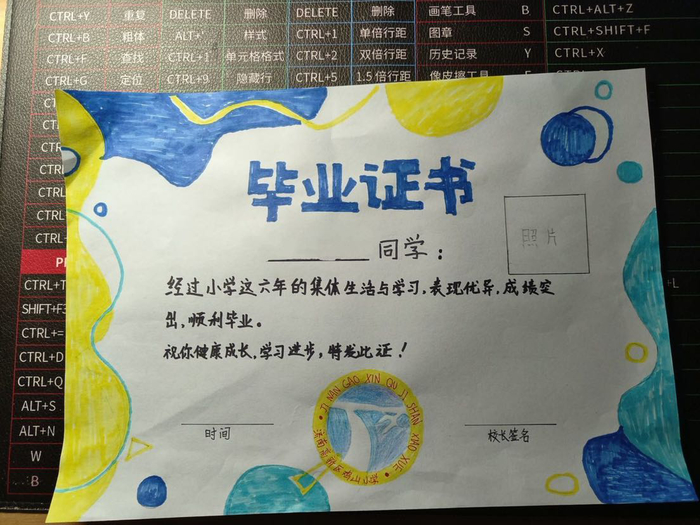 CTRL+Y 重复 DELETE 删除 DELETE 删除 画笔工具 B CTRL+ALT+Z
CTRL+B 粗体 ALT+' 样式 CTRL+1 单倍行距 图章 S CTRL+SHIFT+F
CTRL+F 查找 CTRL+1 单元格格式 CTRL+2 双倍行距 历史记录 Y CTRL+X
CTRL+G 定位 CTRL+9 隐藏行 CTRL+5 1.5倍行距 像皮擦工具 E
毕业证书
照片
同学：
经过小学这六年的集体生活与学习,表现优异,成绩突
出,顺利毕业。
祝你健康成长,学习进步,特发此证！
时间
校长签名
JI NAN GAO XIN QU JI SHAN XIAO XUE
CTRL+T
SHIFT+F3
CTRL+=
CTRL+D
CTRL+Q
ALT+S
ALT+N
W
B